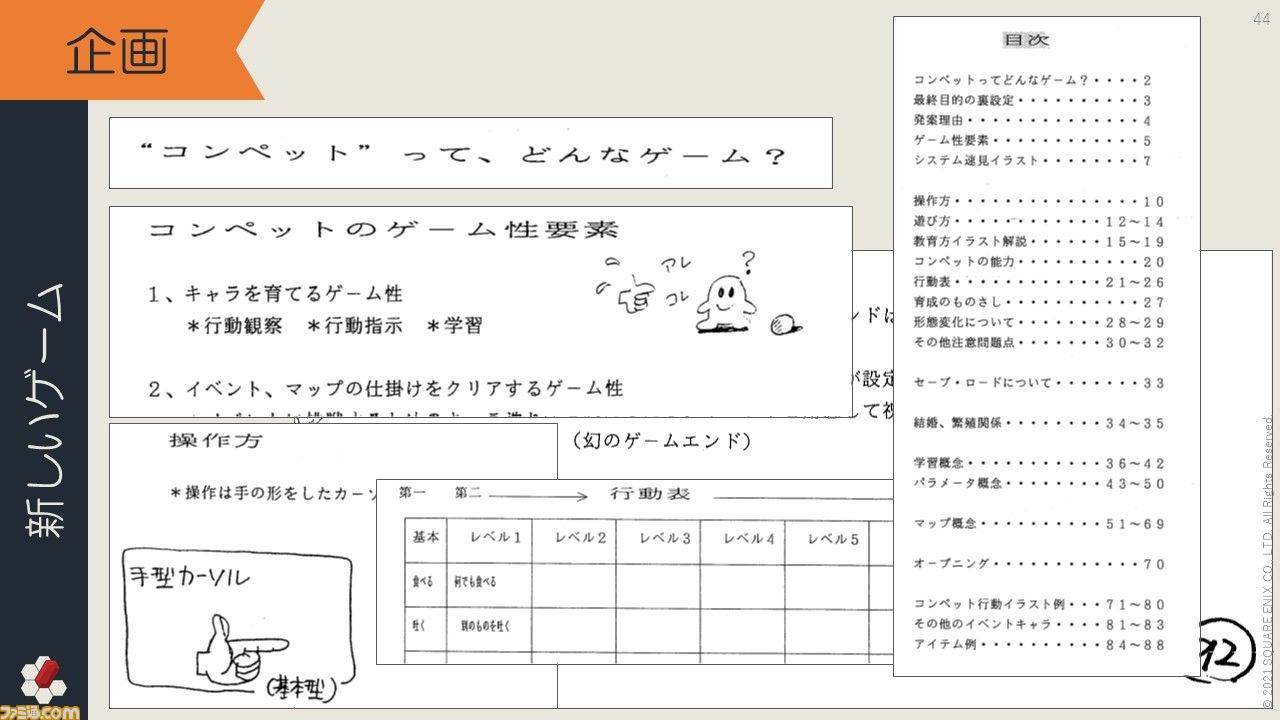 企画
44
新しいゲーム
“コンペット” って、どんなゲーム？
コンペットのゲーム性要素
アレ
コレ
?
1、キャラを育てるゲーム性
＊行動観察　＊行動指示　＊学習
2、イベント、マップの仕掛けをクリアするゲーム性
ンドは
が設定
して祝
（幻のゲームエンド）
操作方
＊操作は手の形をしたカーソ
手型カーソル
(基本型)
第一　第二　行動表
基本　レベル1　レベル2　レベル3　レベル4　レベル5
食べる　何でも食べる
吐く　別のものを吐く
目次
コンペットってどんなゲーム？・・・・2
最終目的の裏設定・・・・・・・・・・3
発案理由・・・・・・・・・・・・・・4
ゲーム性要素・・・・・・・・・・・・5
システム速見イラスト・・・・・・・・7
操作方・・・・・・・・・・・・・・・10
遊び方・・・・・・・・・・・・12～14
教育方イラスト解説・・・・・・15～19
コンペットの能力・・・・・・・・・・20
行動表・・・・・・・・・・・・21～26
育成のものさし・・・・・・・・・・・27
形態変化について・・・・・・・28～29
その他注意問題点・・・・・・・30～32
セーブ・ロードについて・・・・・・・33
結婚、繁殖関係・・・・・・・・34～35
学習概念・・・・・・・・・・・36～42
パラメータ概念・・・・・・・・43～50
マップ概念・・・・・・・・・・51～69
オープニング・・・・・・・・・・・・70
コンペット行動イラスト例・・・71～80
その他のイベントキャラ・・・・81～83
アイテム例・・・・・・・・・・84～88
92
© 2021 SQUARE ENIX CO., LTD. All Rights Reserved.
ファミ通.com